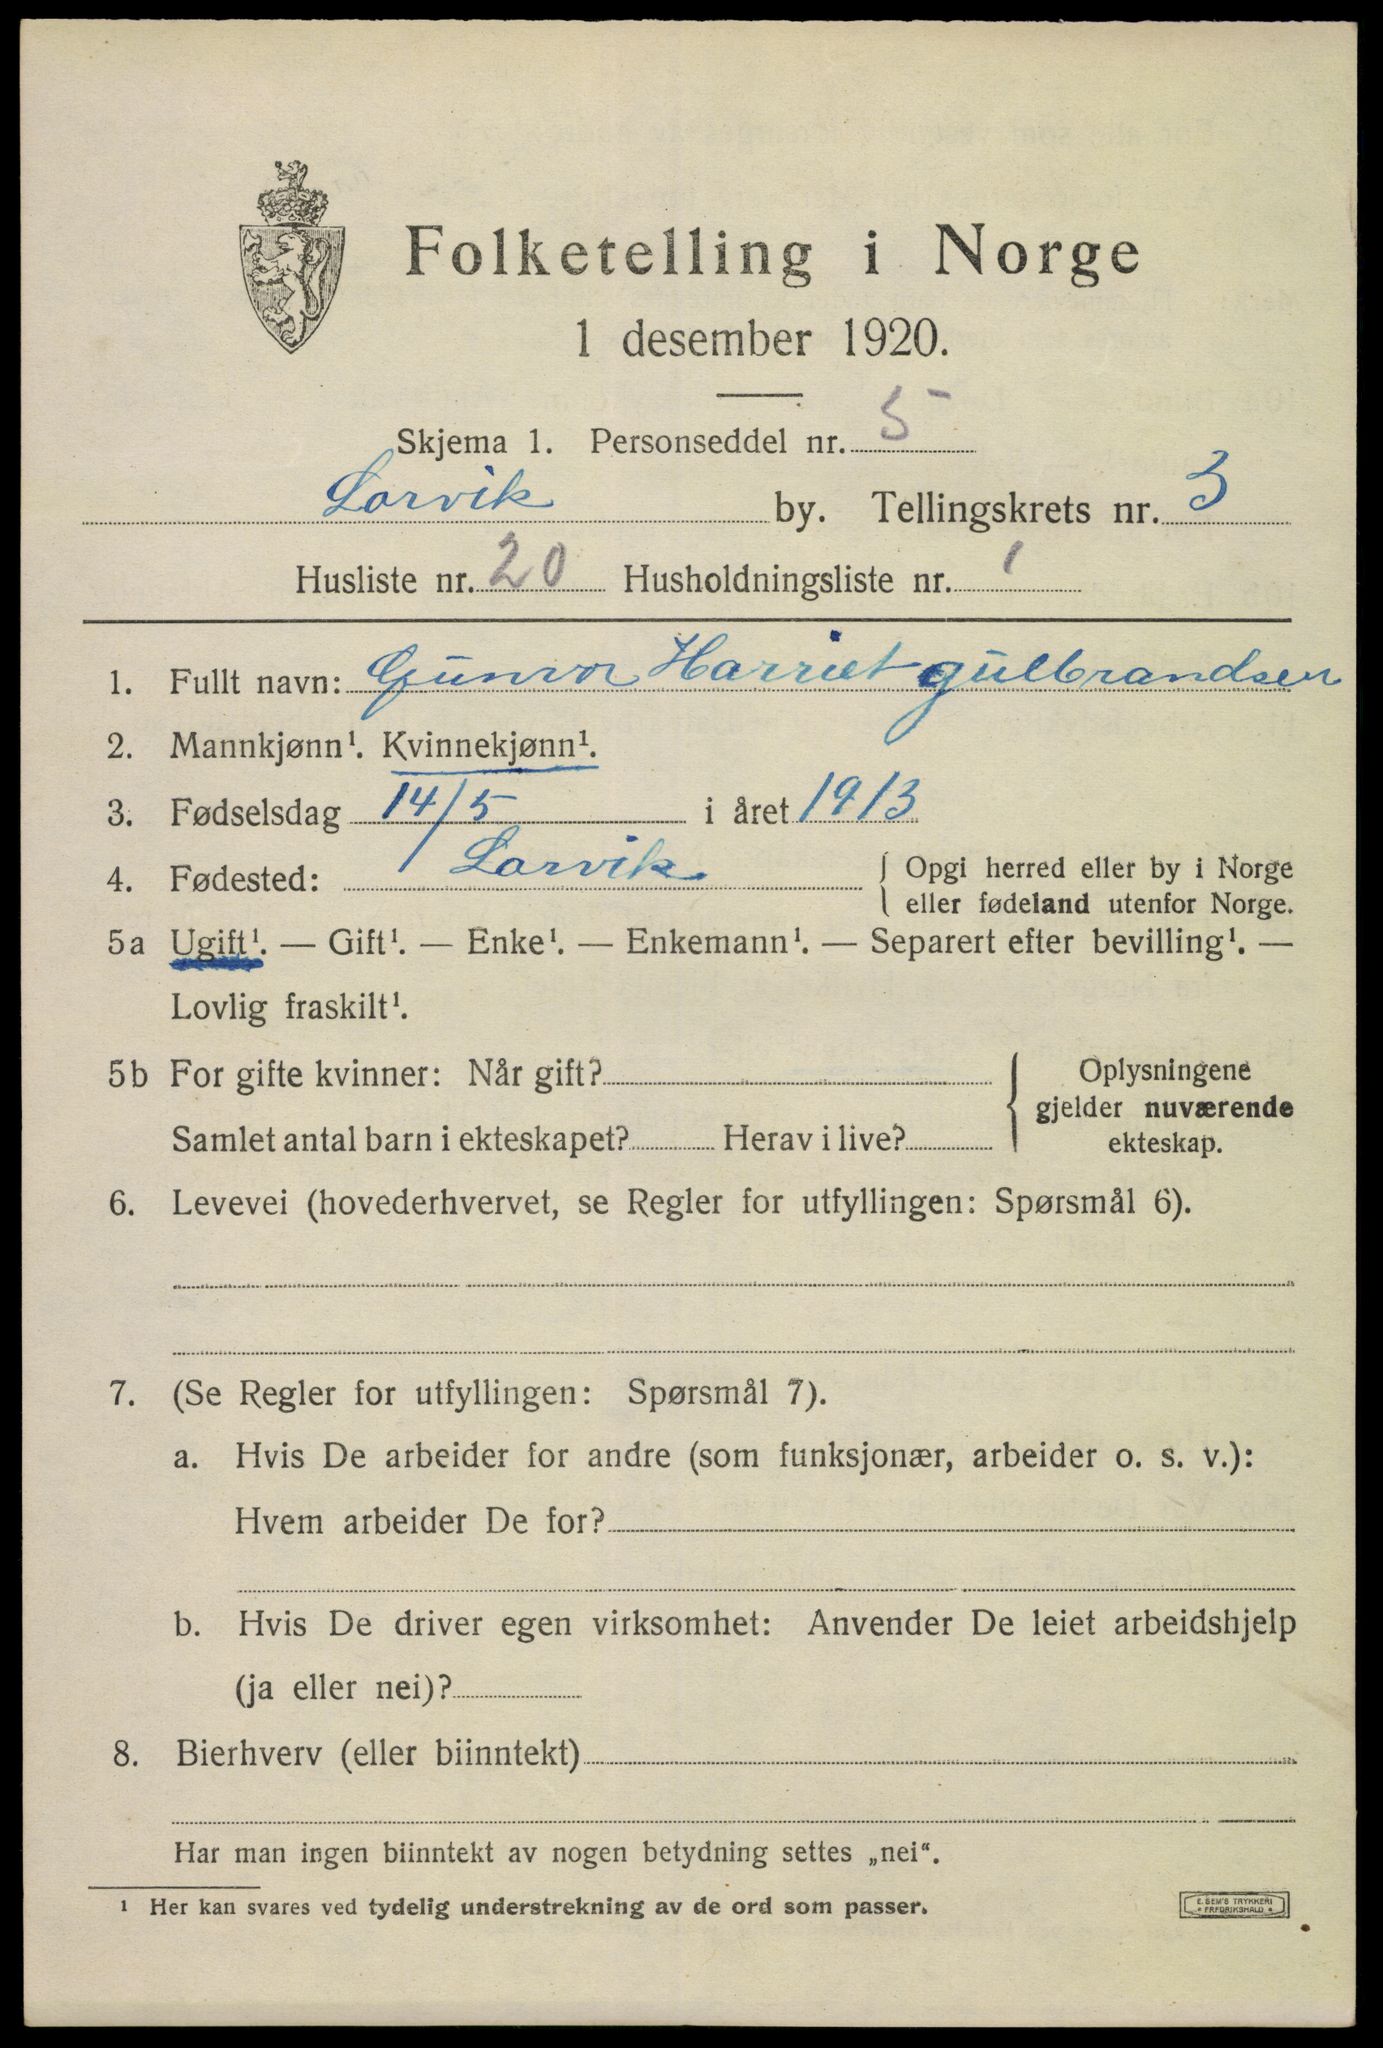 Folketelling i Norge
1 desember 1920.
Skjema 1. Personseddel nr. 5
Larvik by. Tellingskrets nr. 3
Husliste nr. 20 Husholdningsliste nr. 1
1. Fullt navn: Gunvor Harriet Gulbrandsen
2. Mannkjønn¹. Kvinnekjønn¹.
3. Fødselsdag 14/5 i året 1913
4. Fødested: Larvik { Opgi herred eller by i Norge
eller fødeland utenfor Norge.
5a Ugift¹. — Gift¹. — Enke¹. — Enkemann¹. — Separert efter bevilling¹. —
Lovlig fraskilt¹.
5b For gifte kvinner: Når gift?
Samlet antal barn i ekteskapet? Herav i live?
{ Oplysningene
gjelder nuværende
ekteskap.
6. Levevei (hovederhvervet, se Regler for utfyllingen: Spørsmål 6).
7. (Se Regler for utfyllingen: Spørsmål 7).
a. Hvis De arbeider for andre (som funksjonær, arbeider o. s. v.):
Hvem arbeider De for?
b. Hvis De driver egen virksomhet: Anvender De leiet arbeidshjelp
(ja eller nei)?
8. Bierhverv (eller biinntekt)
Har man ingen biinntekt av nogen betydning settes „nei“.
¹ Her kan svares ved tydelig understrekning av de ord som passer.
E. SEM'S TRYKKERI
* FREDRIKSHALD *